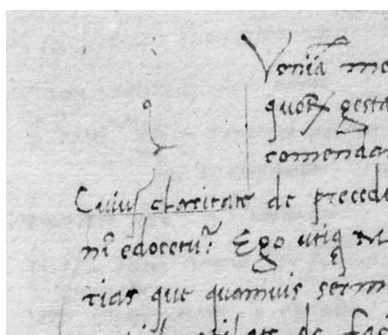 Veniā me
quoꝝ gesta
comendar
Cuius claritate de precede
nr̄ edocetur Ego utiq M
tias que quamuis serm